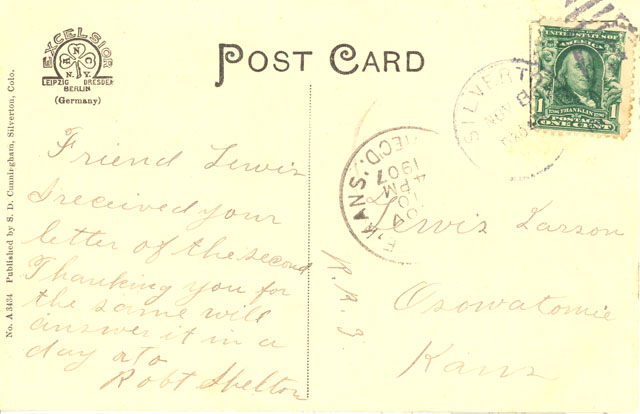 POST CARD
EXCELSIOR
N.Y.
LEIPZIG DRESDEN
BERLIN
(Germany)
No. A 3434 Published by S. D. Cunningham, Silverton, Colo.
Friend Lewis
I received your
letter of the second
Thanking you for
the same will
answer it in a
day or to
Robt Shelton
SILVERT
UNITED STATES OF
AMERICA
1 FRANKLIN 1
POSTAGE
ONE CENT
KANS.
REC'D.
4 PM
1907
Lewis Larson
R.R.3.
Osowatomie
Kans